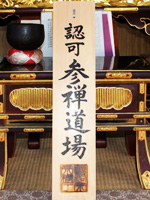 認可
参禅道場